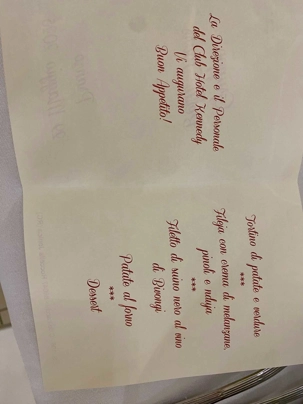 La Direzione e il Personale
del Club Hotel Kennedy
Vi augurano
Buon Appetito!
Tortino di patate e verdure
***
Fileja con crema di melanzane,
pinoli e nduja
***
Filetto di suino nero al vino
di Bivongi
Patate al forno
***
Dessert